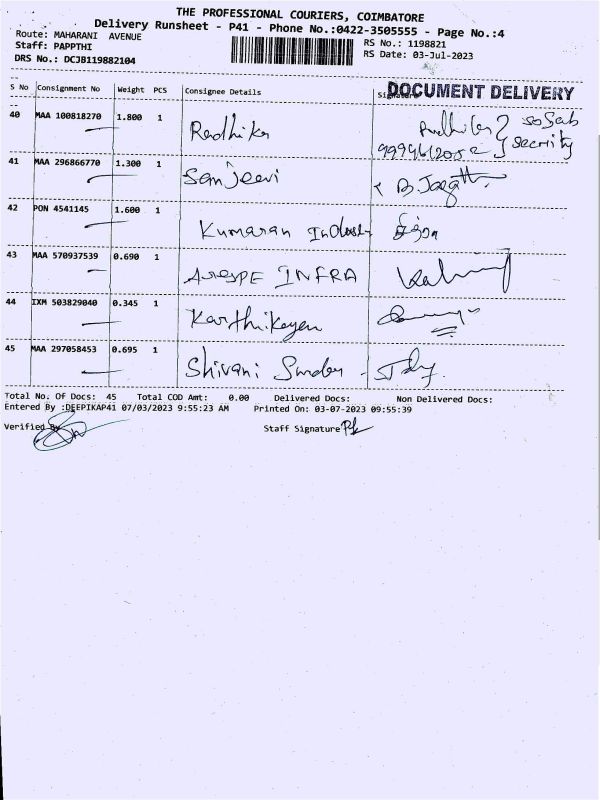 THE PROFESSIONAL COURIERS, COIMBATORE
Delivery Runsheet - P41 - Phone No.:0422-3505555 - Page No.:4
Route: MAHARANI AVENUE
Staff: PAPPTHI
DRS No.: DCJB119882104
RS No.: 1198821
RS Date: 03-Jul-2023
DOCUMENT DELIVERY
S No Consignment No Weight PCS Consignee Details Signature
40 MAA 100818270 1.800 1 Radhika
security
41 MAA 296866770 1.300 1 Sanjeevi
42 PON 4541145 1.600 1 Kumaran
43 MAA 570937539 0.690 1 INFRA
44 IXM 503829040 0.345 1 Karthikeyen
45 MAA 297058453 0.695 1 Shivani
Total No. Of Docs: 45 Total COD Amt: 0.00 Delivered Docs: Non Delivered Docs:
Entered By :DEEPIKAP41 07/03/2023 9:55:23 AM Printed On: 03-07-2023 09:55:39
Verified By Staff Signature